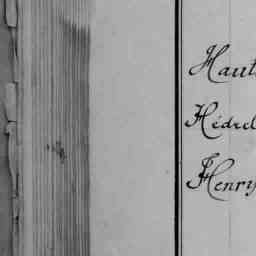 Haut
Hédel
Henry